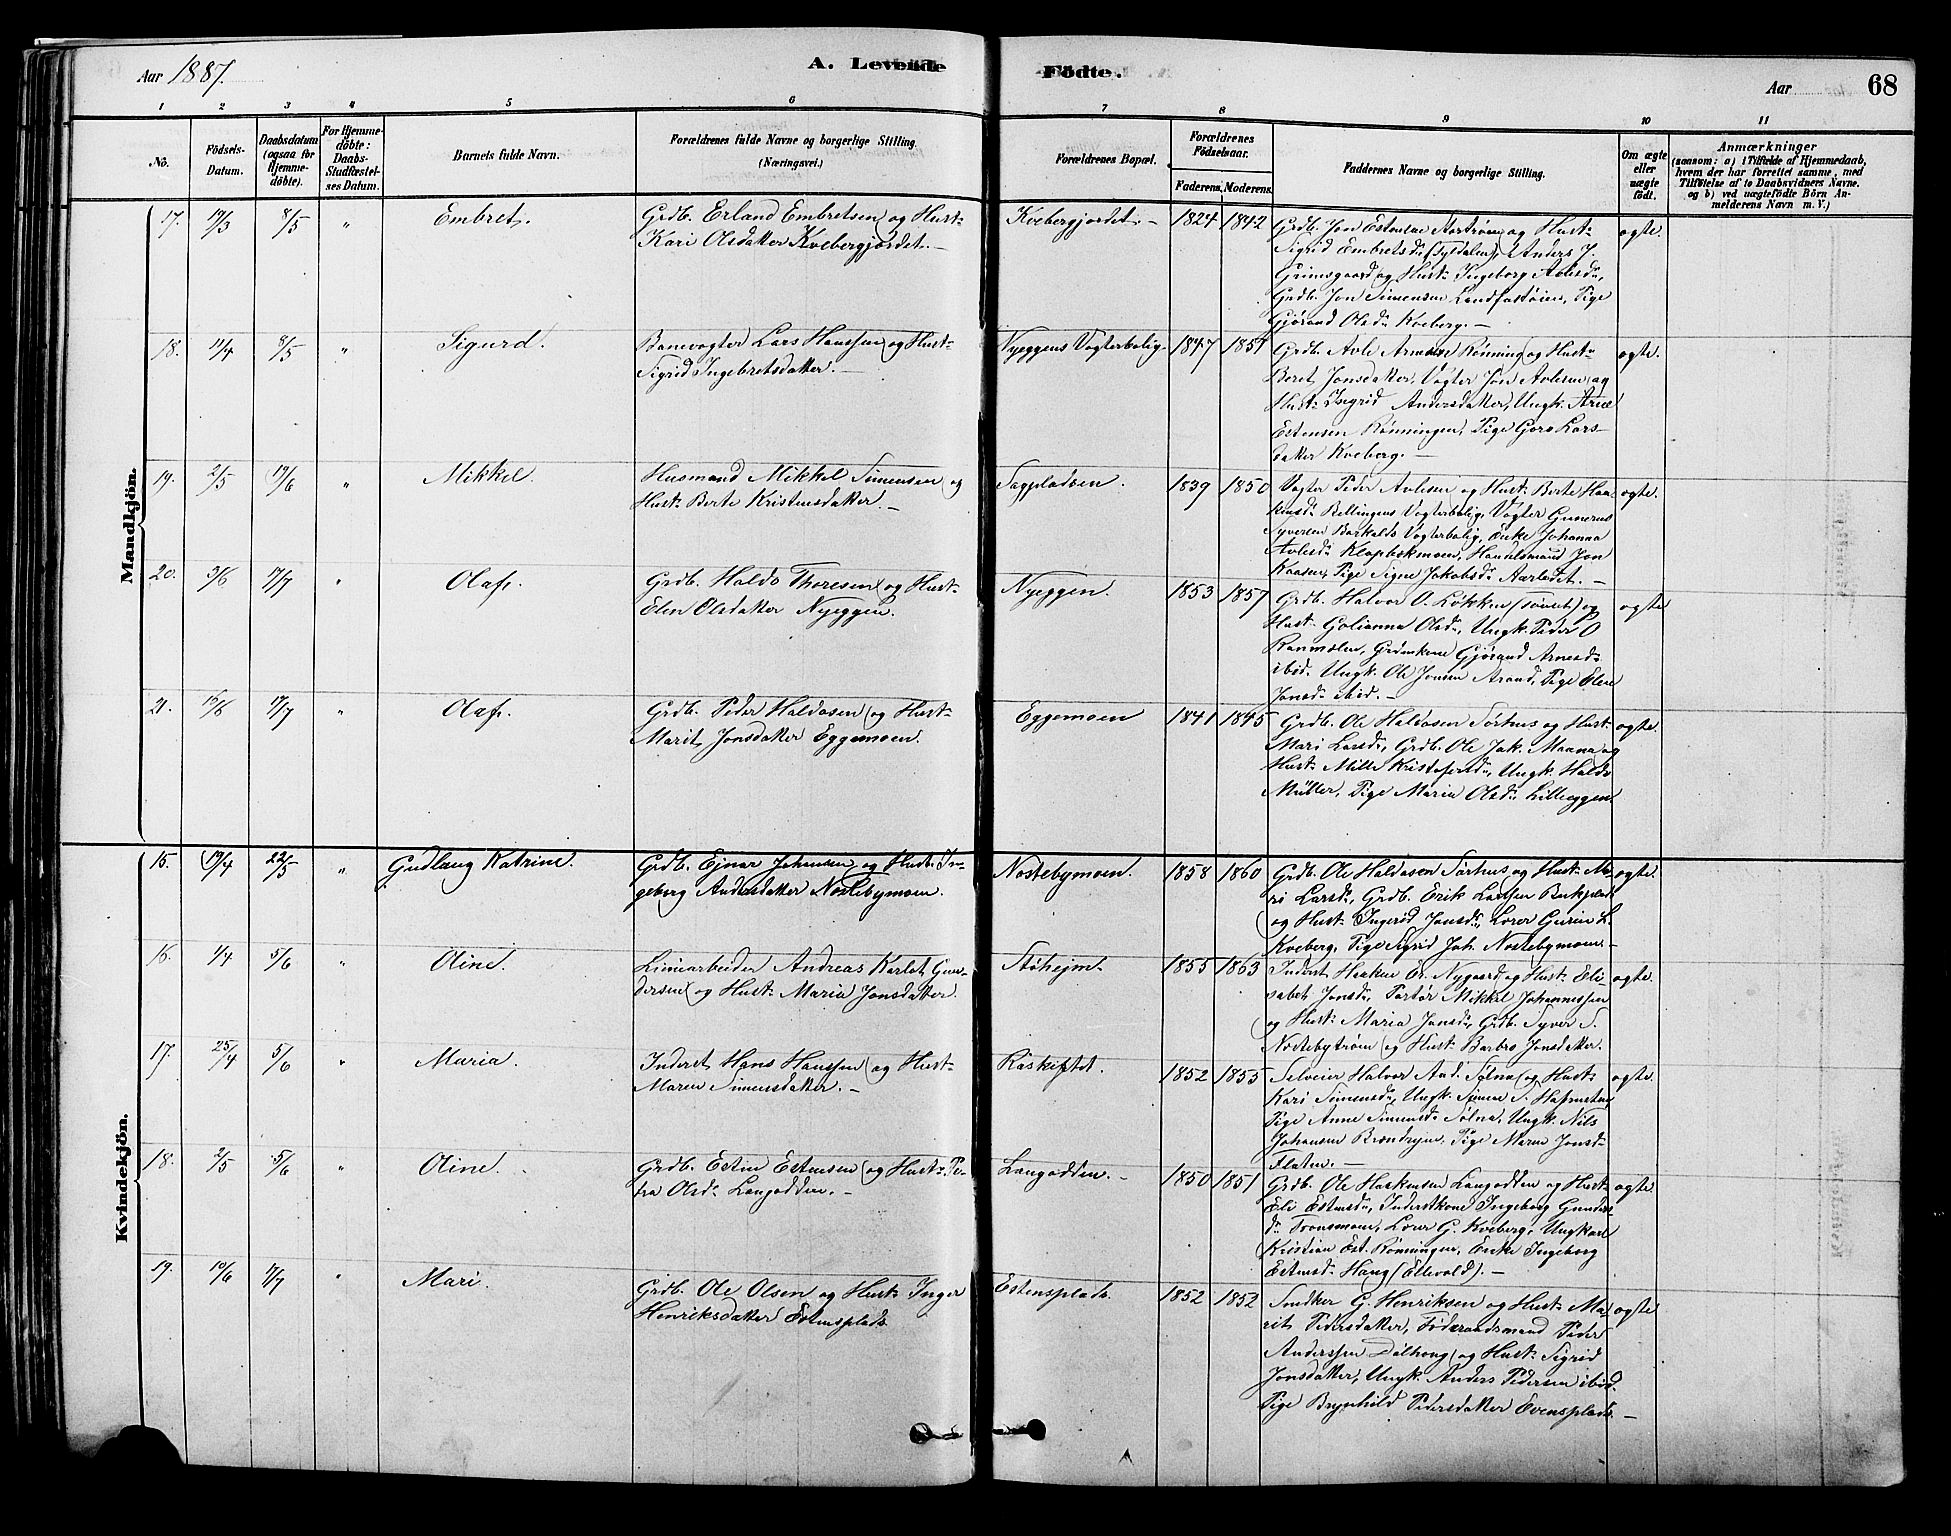 Aar 1887.
A. Levende
Födte.
Aar
68
1 2 3 4 5 6 7 8 9 10 11
No.
Födsels-
Datum.
Daabsdatum
(ogsaa for
Hjemme-
döbte).
For Hjemme-
döbte:
Daabs-
Stadfæstel-
ses Datum.
Barnets fulde Navn.
Forældrenes fulde Navne og borgerlige Stilling.
(Næringsvei.)
Forældrenes Bopæl.
Forældrenes
Födselsaar.
Faderens. Moderens.
Faddernes Navne og borgerlige Stilling.
Om ægte
eller
uægte
födt.
Anmærkninger
(saasom: a) i Tilfælde af Hjemmedaab,
hvem der har forrettet samme, med
Tilföielse af to Daabsvidners Navne.
og b) ved uægtefödte Börn An-
melderens Navn m. V.)
Mandkjön.
17. 19/3 8/5 " Embret.
Grdb. Erland Embretsen og Hust:
Kari Olsdatter Kvebergjordet. —
Kvebergjordet. — 1824 1842
Grdb. Jon Estensen Aaström og Hust:
Sigrid Embretsd: (Tyldalen), Anders J.
Grimsgaard og Hust: Ingeborg Avlesd:,
Grdb. Jon Simensen Landfastöien, Pige
Gjörand Olsd: Kveberg. —
ægte.
18. 11/4 8/5 " Sigurd.
Banevogter Lars Hanssen og Hust:
Sigrid Ingebretsdatter. —
Nyeggens Vogterbolig. 1847 1851
Grdb. Avle Arnesen Rönning og Hust:
Beret Jonsdatter, Vogter Jon Avlesen og
Hust: Ingrid Andersdatter, Ungk. Arne
Estensen Rönningen, Pige Goro Lars-
datter Kveberg. —
ægte.
19. 2/5 19/6 " Mikkel.
Husmand Mikkel Simensen og
Hust: Berte Kristensdatter. —
Sagpladsen. 1839 1850
Vogter Peder Avlesen og Hust: Berte Haa-
kensd: Bellingens Vogterbolig, Vogter Gunerius
Syversen Barkalds Vogterbolig, Enke Johanna
Avlesd: Klapbekmoen, Handelsmand Jon
Kaasen, Pige Signe Jakobsd: Aarlodet. —
ægte.
20. 3/6 17/7 " Olaf.
Grdb. Haldo Thoresen og Hust:
Elen Olsdatter Nyeggen.
Nyeggen. 1853 1857
Grdb. Halvor O. Lökken og
Hust: Golianna Olsd:, Ungk. Peder O
Ranmælen, Grdmkone Gjörand Arnesd:
ibid. Ungk. Ole Jonsen Strand, Pige Elen
Jonsd: ibid. —
ægte
21. 15/6 17/7 " Olaf.
Grdb. Peder Haldosen og Hust:
Marit Jonsdatter Eggemoen.
Eggemoen 1841 1845
Grdb. Ole Haldosen Sörhus og Hust:
Mari Larsd:, Grdb. Ole Jak. Maana og
Hust: Mille Kristofersd:, Ungk. Haldo
Müller, Pige Maria Olsd: Lilleeggen.
ægte.
Kvindekjön.
15. 19/4 22/5 " Gudlaug Katrine.
Grdb. Ejnar Johansen og Hust: In-
geborg Andersdatter Nöstebymoen.
Nöstebymoen. 1858 1860
Grdb. Ole Haldosen Sörhus og Hust: Ma-
ri Larsd:, Grdb. Erik Larssen Bækplads
og Hust: Ingerid Jonsd:, Lærer Gurin L.
Kveberg, Pige Sigrid Joh. Nöstebymoen. —
ægte.
16. 1/4 5/6 " Oline.
Liniearbeider Andreas Karlot Gun-
dersen og Hust: Maria Jonsdatter.
Stöhejm. 1855 1863
Inderst Haaken Er. Nygaard og Hust: Eli-
sabet Jonsd:, Portör Mikkel Johannessen
og Hust: Maria Jonsd:, Grdb. Syver S.
Nöstebytröen og Hust: Barbro Jonsdatter.
ægte.
17. 25/4 5/6 " Maria.
Inderst Hans Hanssen og Hust:
Maren Simensdatter. —
Röskiftet. 1852 1855
Selveier Halvor And. Sölna og Hust:
Kari Simensd:, Ungk. Simen S. Hafnsten
Pige Anne Simensd: Sölna, Ungk. Nils
Johansen Brændryen, Pige Maren Jonsd:
Flaten. —
ægte.
18. 2/5 5/6 " Oline.
Grdb. Esten Estensen og Hust: Pe-
tra Olsd: Langodden. —
Langodden. — 1850 1851
Grdb. Ole Haakensen Langodden og Hust:
Eli Estensd:, Inderstkone Ingeborg Gunders-
d: Tronsmoen, Lærer G. Kveberg, Ungkarl
Kristian Est. Rönningen, Enke Ingeborg
Estensd: Haug (Ellevold). —
ægte.
19. 10/6 17/7 " Mari.
Grdb. Ole Olsen og Hust: Inger
Henriksdatter Estensplads
Estensplads. 1852 1852
Snedker G. Henriksen og Hust: Ma-
rit Pedersdatter, Föderaadsmand Peder
Anderssen Dölhoug og Hust: Sigrid
Jonsdatter, Ungk. Anders Pedersen ibid.
Pige Brynhild Pedersdatter Evensplads. —
ægte.